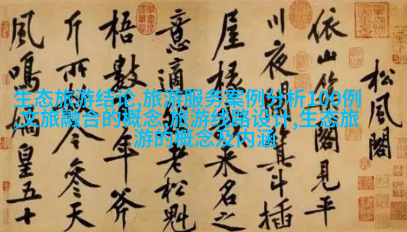 生态旅游结论,旅游服务案例分析100例
,文旅融合的概念,旅游线路设计,生态旅
游的概念及内涵
松風閣
依山築閣見平
川夜闌箕斗插
屋椽我來名之
意適然老松魁
梧數百年斧
斤所赦今參天
風鳴媧皇五十